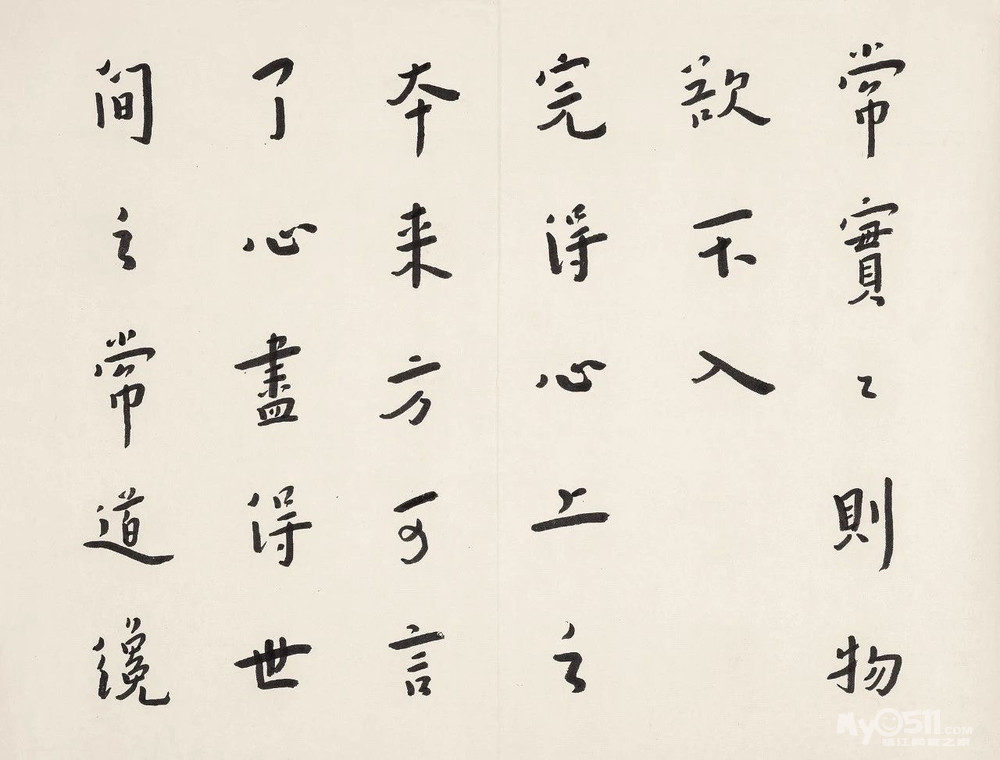 常實〻則物
欲不入
完得心上之
本来方可言
了心盡得世
間之常道纔
My0511.COM